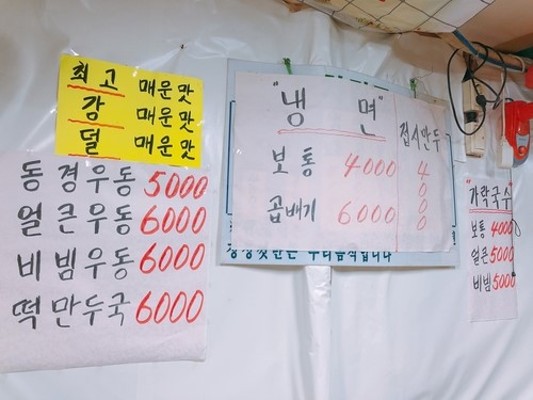 최고 매운맛
감 매운맛
덜 매운맛
동경우동 5000
얼큰우동 6000
비빔우동 6000
떡만두국 6000
"냉면"
보통 4000
곱배기 6000
접시만두
4000
"가락국수"
보통 4000
얼큰 5000
비빔 5000